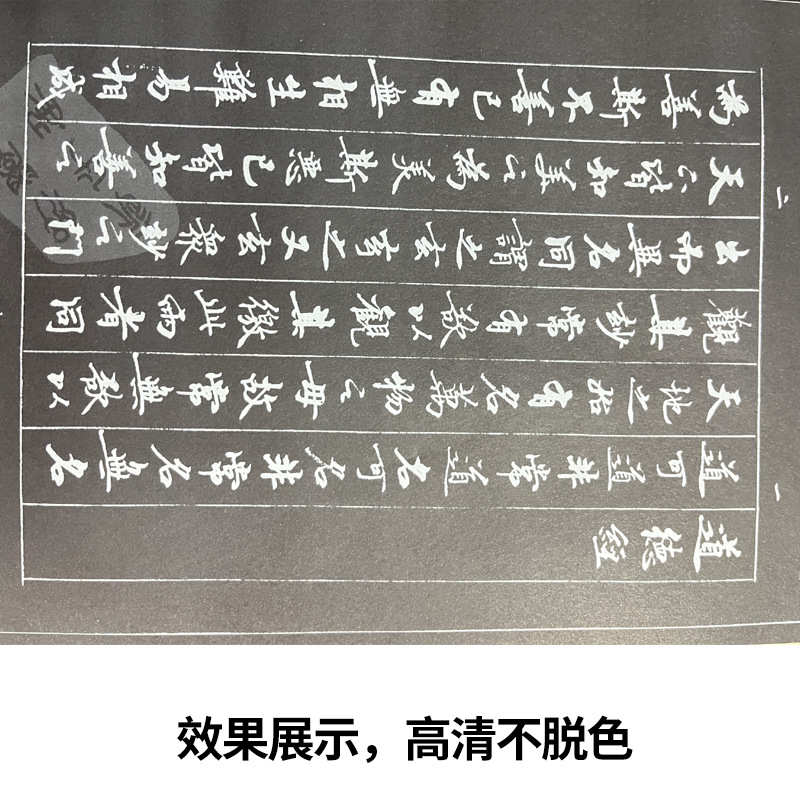 道德經
一
道可道非常道名可名非常名無名
天地之始有名萬物之母故常無欲以
觀其妙常有欲以觀其徼此兩者同
出而異名同謂之玄玄之又玄衆妙之門
二
天下皆知美之為美斯惡已皆知善之
為善斯不善已有無相生難易相成
效果展示，高清不脱色